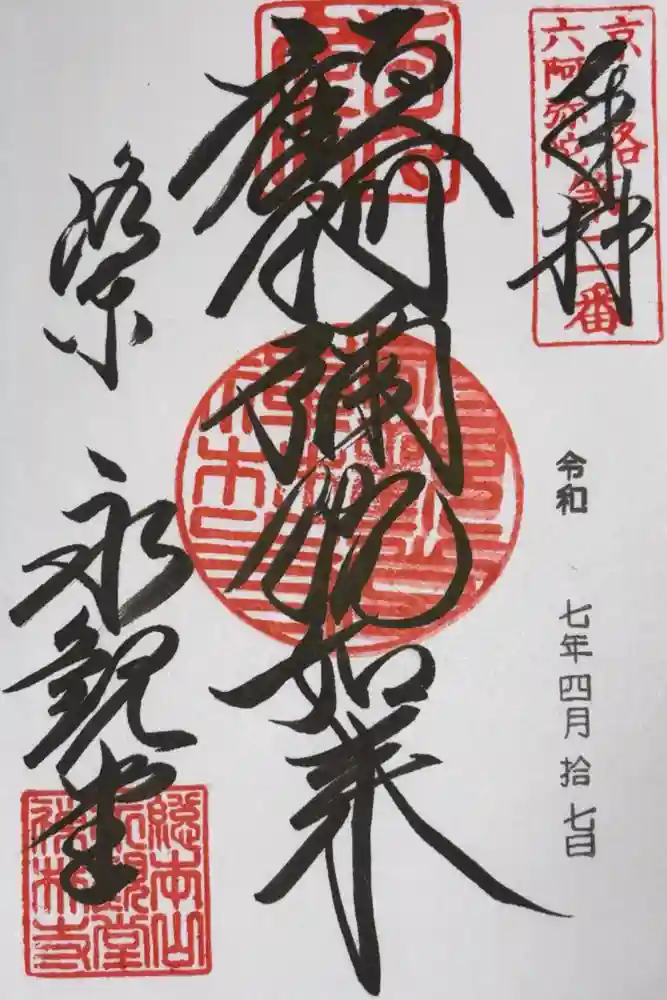 奉拝
京洛
六阿弥陀第二番
令和 七年四月拾七日
顧阿彌陀如来
洛東 永観堂
總本山
永観堂
禅林寺